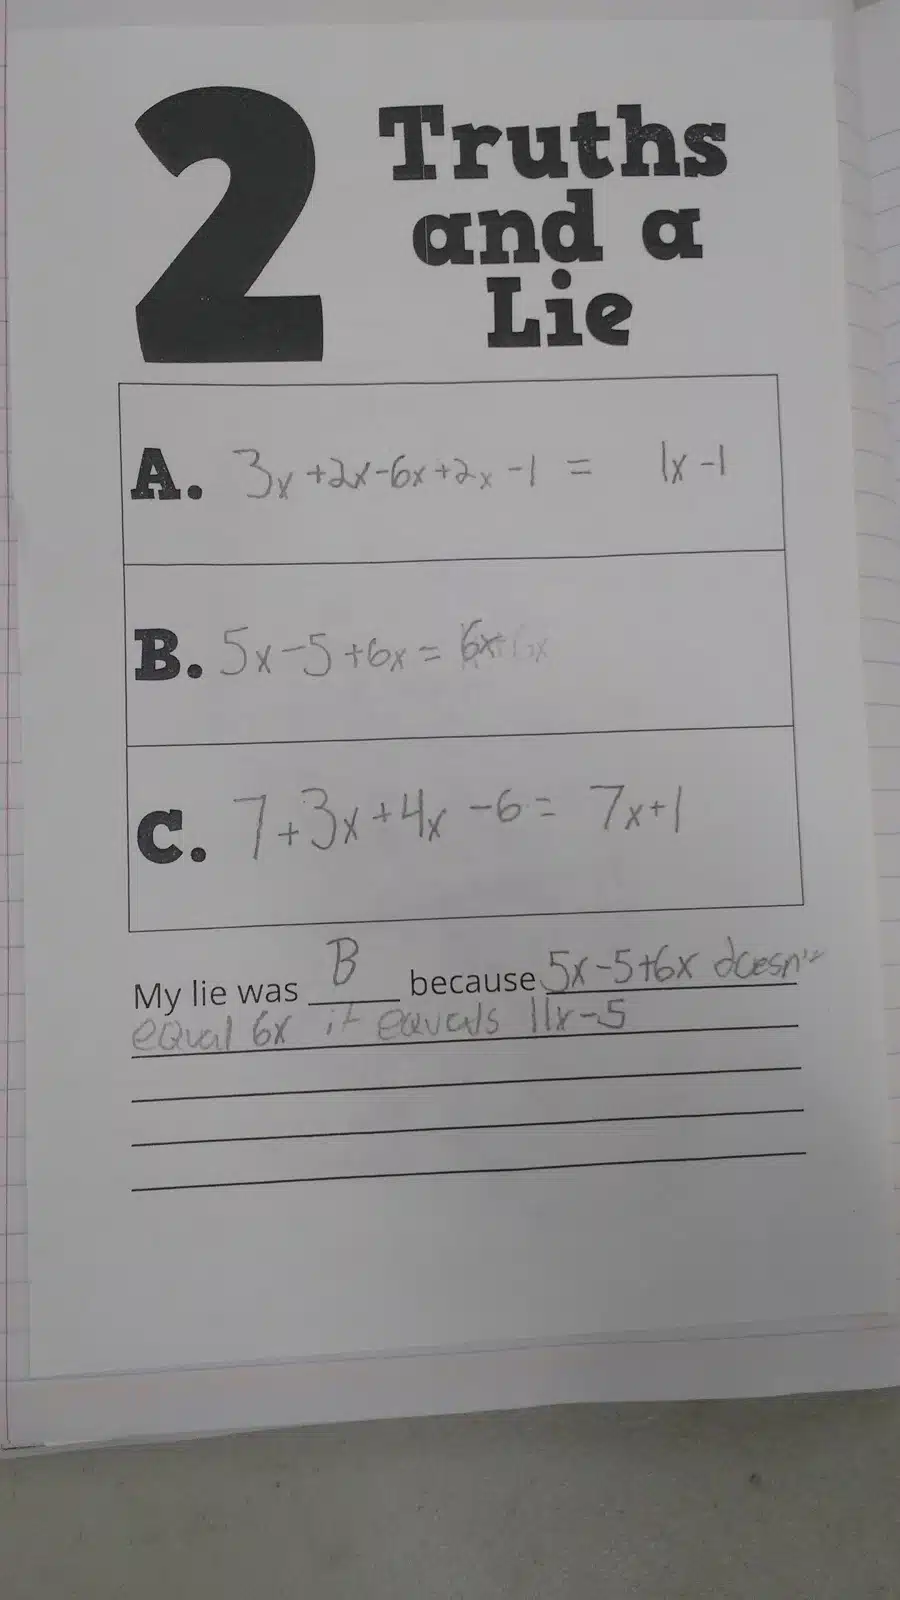 2 Truths
and a
Lie
A. 3x+2x-6x+2x-1 = 1x-1
B. 5x-5+6x= 6x
C. 7+3x+4x-6= 7x+1
My lie was B because 5x-5+6x doesn't
equal 6x it equals 11x-5